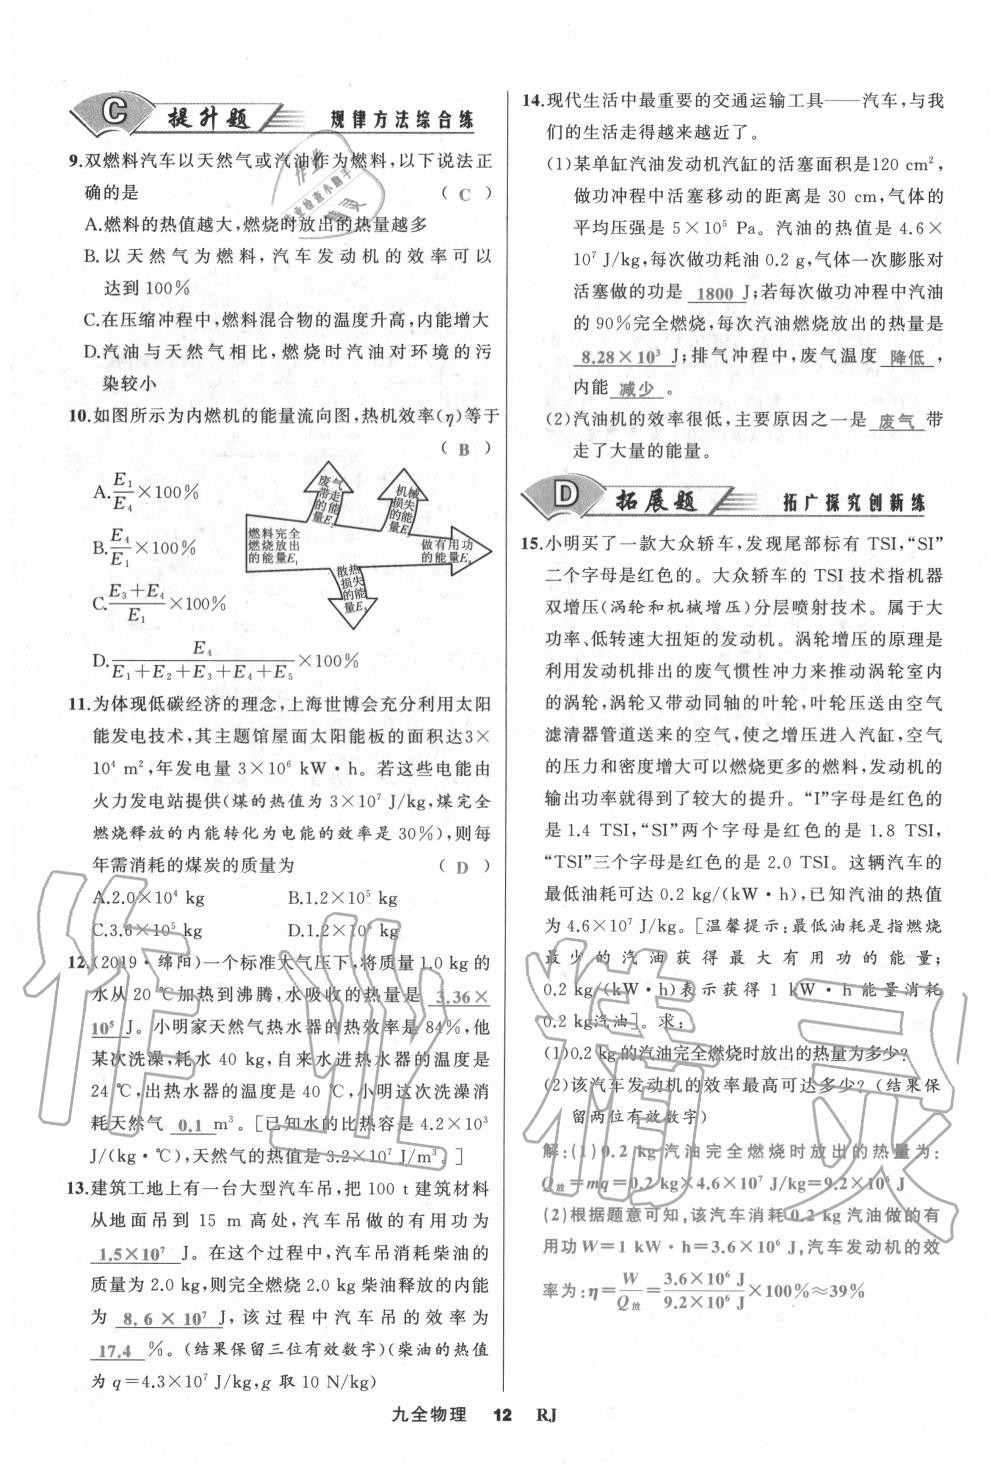 C 提升题 规律方法综合练
9.双燃料汽车以天然气或汽油作为燃料,以下说法正
确的是 ( C )
A.燃料的热值越大,燃烧时放出的热量越多
B.以天然气为燃料,汽车发动机的效率可以
达到100%
C.在压缩冲程中,燃料混合物的温度升高,内能增大
D.汽油与天然气相比,燃烧时汽油对环境的污
染较小
10.如图所示为内燃机的能量流向图,热机效率(η)等于
( B )
A.E₁/E₄×100%
B.E₄/E₁×100%
C.(E₃+E₄)/E₁×100%
D.E₄/(E₁+E₂+E₃+E₄+E₅)×100%
废气带走的能量E₂
机械损失的能量E₃
燃料完全燃烧放出的能量E₁
做有用功的能量E₄
散热损失的能量E₅
11.为体现低碳经济的理念,上海世博会充分利用太阳
能发电技术,其主题馆屋面太阳能板的面积达3×
10⁴ m²,年发电量 3×10⁶ kW·h。若这些电能由
火力发电站提供(煤的热值为 3×10⁷ J/kg,煤完全
燃烧释放的内能转化为电能的效率是 30%),则每
年需消耗的煤炭的质量为 ( D )
A.2.0×10⁴ kg B.1.2×10⁵ kg
C.3.6×10⁵ kg D.1.2×10⁶ kg
12.(2019·绵阳)一个标准大气压下,将质量 1.0 kg的
水从 20 ℃加热到沸腾,水吸收的热量是 3.36×
10⁵ J。小明家天然气热水器的热效率是 84%,他
某次洗澡,耗水 40 kg,自来水进热水器的温度是
24 ℃,出热水器的温度是 40 ℃,小明这次洗澡消
耗天然气 0.1 m³。[已知水的比热容是 4.2×10³
J/(kg·℃),天然气的热值是 3.2×10⁷ J/m³。]
13.建筑工地上有一台大型汽车吊,把 100 t 建筑材料
从地面吊到 15 m 高处,汽车吊做的有用功为
1.5×10⁷ J。在这个过程中,汽车吊消耗柴油的
质量为 2.0 kg,则完全燃烧 2.0 kg 柴油释放的内能
为 8.6×10⁷ J,该过程中汽车吊的效率为
17.4 %。(结果保留三位有效数字)(柴油的热值
为 q=4.3×10⁷ J/kg,g 取 10 N/kg)
14.现代生活中最重要的交通运输工具——汽车,与我
们的生活走得越来越近了。
(1)某单缸汽油发动机汽缸的活塞面积是120 cm²,
做功冲程中活塞移动的距离是 30 cm,气体的
平均压强是 5×10⁵ Pa。汽油的热值是 4.6×
10⁷ J/kg,每次做功耗油 0.2 g,气体一次膨胀对
活塞做的功是 1800 J;若每次做功冲程中汽油
的 90%完全燃烧,每次汽油燃烧放出的热量是
8.28×10³ J;排气冲程中,废气温度 降低 ,
内能 减少 。
(2)汽油机的效率很低,主要原因之一是 废气 带
走了大量的能量。
D 拓展题 拓广探究创新练
15.小明买了一款大众轿车,发现尾部标有 TSI,“SI”
二个字母是红色的。大众轿车的 TSI 技术指机器
双增压(涡轮和机械增压)分层喷射技术。属于大
功率、低转速大扭矩的发动机。涡轮增压的原理是
利用发动机排出的废气惯性冲力来推动涡轮室内
的涡轮,涡轮又带动同轴的叶轮,叶轮压送由空气
滤清器管道送来的空气,使之增压进入汽缸,空气
的压力和密度增大可以燃烧更多的燃料,发动机的
输出功率就得到了较大的提升。“I”字母是红色的
是 1.4 TSI,“SI”两个字母是红色的是 1.8 TSI,
“TSI”三个字母是红色的是 2.0 TSI。这辆汽车的
最低油耗可达 0.2 kg/(kW·h),已知汽油的热值
为 4.6×10⁷ J/kg。[温馨提示:最低油耗是指燃烧
最少的汽油获得最大有用功的能量;
0.2 kg/(kW·h)表示获得 1 kW·h 能量消耗
0.2 kg汽油]。求:
(1)0.2 kg的汽油完全燃烧时放出的热量为多少?
(2)该汽车发动机的效率最高可达多少?(结果保
留两位有效数字)
解:(1)0.2 kg 汽油完全燃烧时放出的热量为:
Q放=mq=0.2 kg×4.6×10⁷ J/kg=9.2×10⁶ J
(2)根据题意可知,该汽车消耗0.2 kg汽油做的有
用功W=1 kW·h=3.6×10⁶ J,汽车发动机的效
率为:η=W/Q放=(3.6×10⁶ J)/(9.2×10⁶ J)×100%≈39%
九全物理 12 RJ
作业精灵